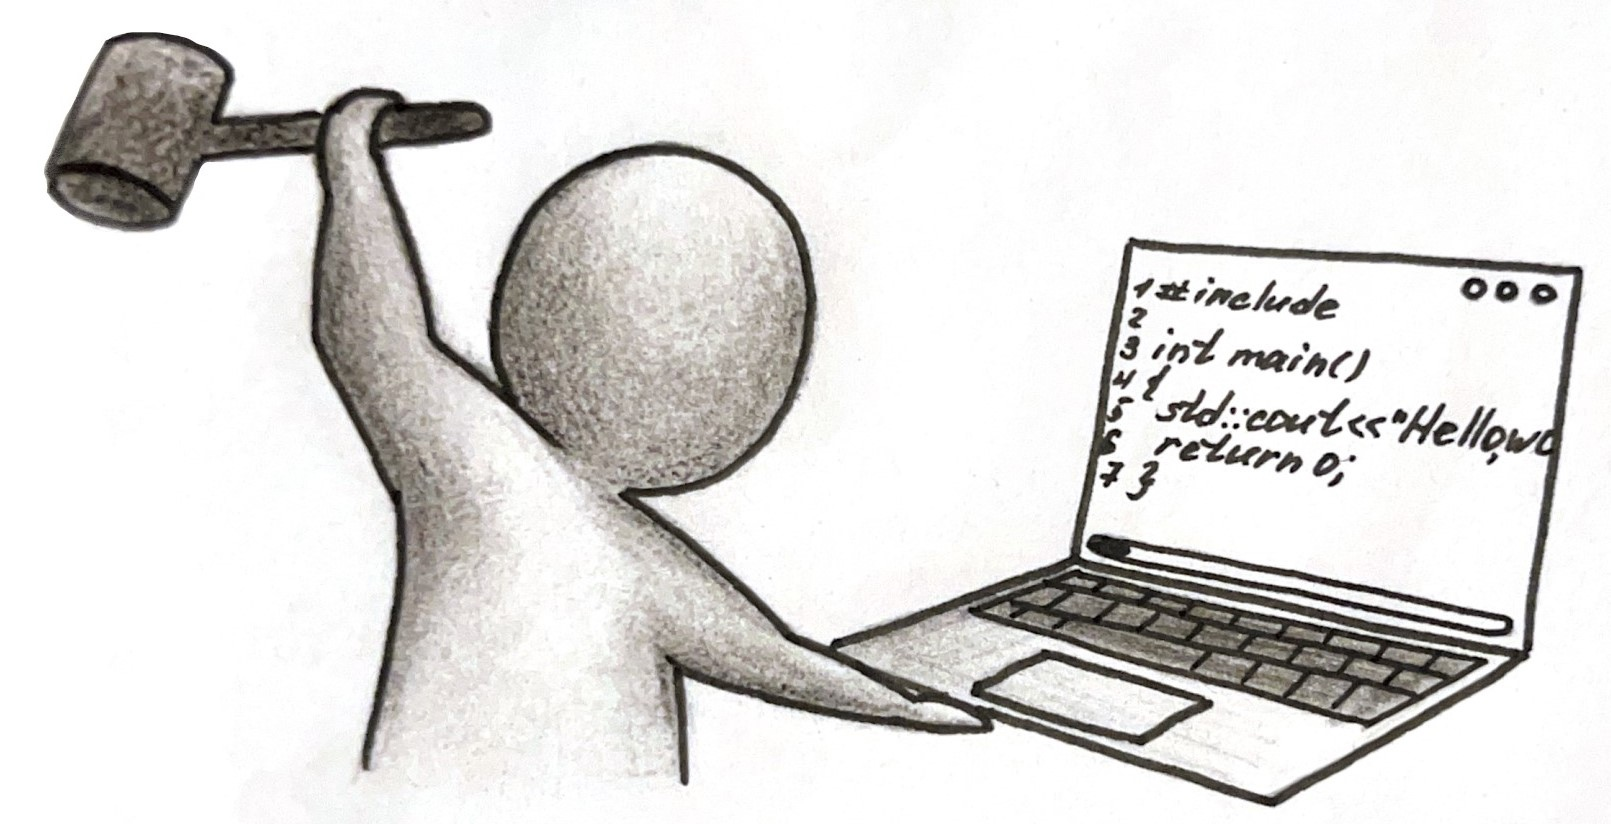 1 #include
2
3 int main()
4 {
5 std::cout<<"Hello,wo
6 return 0;
7 }